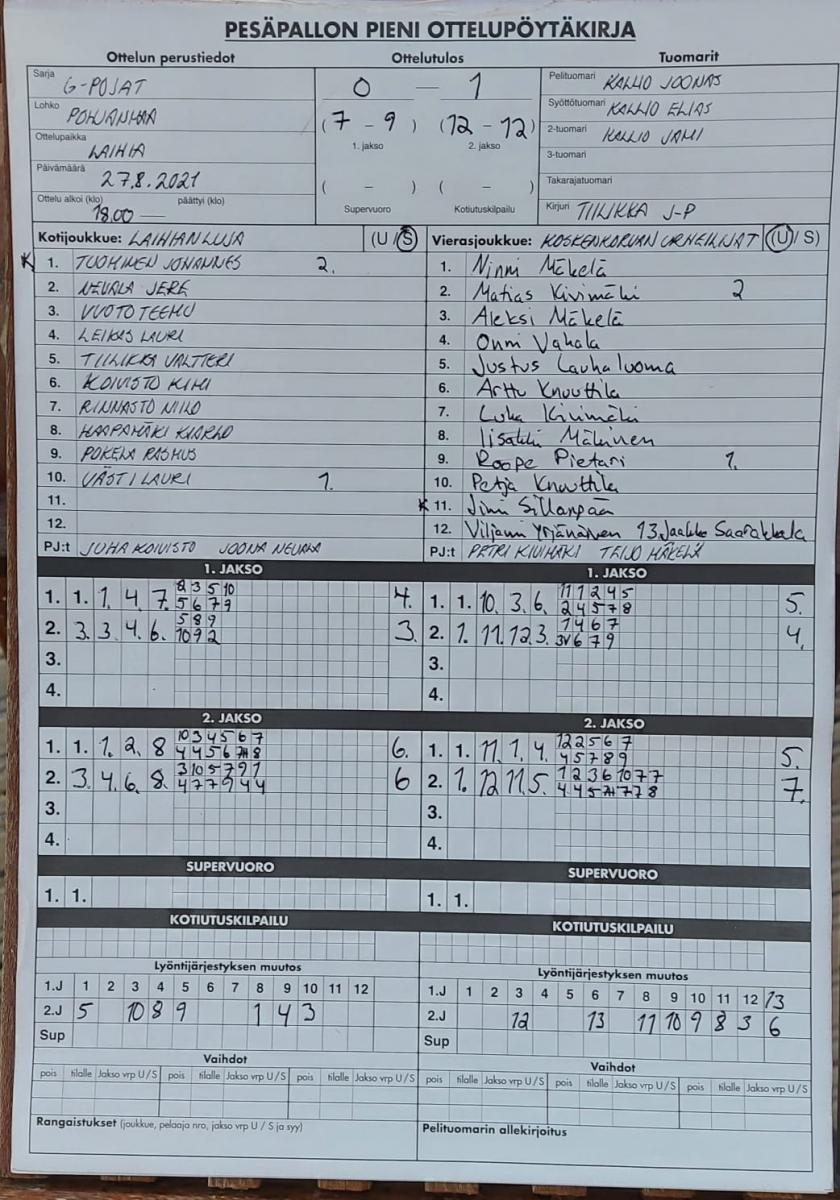 PESÄPALLON PIENI OTTELUPÖYTÄKIRJA
Ottelun perustiedot Ottelutulos Tuomarit
Sarja G-POJAT
Lohko POHJANMAA
Ottelupaikka LAIHIA
Päivämäärä 27.8.2021
Ottelu alkoi (klo) 18.00 — päättyi (klo)
0 — 1
(7 - 9) (12 - 12)
1. jakso 2. jakso
( - ) ( - )
Supervuoro Kotiutuskilpailu
Pelituomari KALLIO JOONAS
Syöttötuomari KALLIO ELIAS
2-tuomari KALLIO JAMI
3-tuomari
Takarajatuomari
Kirjuri TIILIKKA J-P
Kotijoukkue: LAIHIAN LUJA (U/S)
K 1. TUOMINEN JOHANNES 2.
2. NEVALA JERE
3. VUOTO TEEMU
4. LEIKAS LAURI
5. TIILIKKA VALTTERI
6. KOIVISTO KIMI
7. RINNASTO NIILO
8. HAAPAMÄKI
9. POKELA RASMUS
10. VÄSTI LAURI 1.
11.
12.
PJ:t JUHA KOIVISTO JOONA NEVALA
Vierasjoukkue: KOSKENKORVAN URHEILIJAT (U/S)
1. Ninni Mäkelä
2. Matias Kivimäki 2
3. Aleksi Mäkelä
4. Onni Vahala
5. Justus Lauhaluoma
6. Arttu Knuuttila
7. Luka Kivimäki
8. Iisakki Mäkinen
9. Roope Pietari 1.
10. Petja Knuuttila
K 11. Jimi Sillanpää
12. Viljami Yrjänäinen 13. Jaakko Saarakkala
PJ:t PETRI KIVIMÄKI TEIJO MÄKELÄ
1. JAKSO
1. 1. 1. 4. 7. 8 3 5 10 4.
5 6 7 9
2. 3. 3. 4. 6. 5 8 9 3.
10 9 2
3.
4.
1. JAKSO
1. 1. 10. 3. 6. 11 1 2 4 5 5.
2 4 5 7 8
2. 1. 11. 12. 3. 1 4 6 7 4.
6 7 9
3.
4.
2. JAKSO
1. 1. 1. 2. 8 10 3 4 5 6 7 6.
4 4 5 6 8
2. 3. 4. 6. 8. 3 10 5 7 9 1 6
4 7 7 9 4 4
3.
4.
2. JAKSO
1. 1. 11. 1. 4. 12 2 5 6 7 5.
4 5 7 8 9
2. 1. 12 11. 5. 1 2 3 6 10 7 7 7.
4 4 5 7 7 8
3.
4.
SUPERVUORO SUPERVUORO
1. 1. 1. 1.
KOTIUTUSKILPAILU KOTIUTUSKILPAILU
Lyöntijärjestyksen muutos
1.J 1 2 3 4 5 6 7 8 9 10 11 12
2.J 5 10 8 9 1 4 3
Sup
Lyöntijärjestyksen muutos
1.J 1 2 3 4 5 6 7 8 9 10 11 12 13
2.J 12 13 11 10 9 8 3 6
Sup
Vaihdot Vaihdot
pois tilalle Jakso vrp U/S pois tilalle Jakso vrp U/S pois tilalle Jakso vrp U/S
pois tilalle Jakso vrp U/S pois tilalle Jakso vrp U/S pois tilalle Jakso vrp U/S
Rangaistukset (joukkue, pelaaja nro, jakso vrp U / S ja syy)
Pelituomarin allekirjoitus